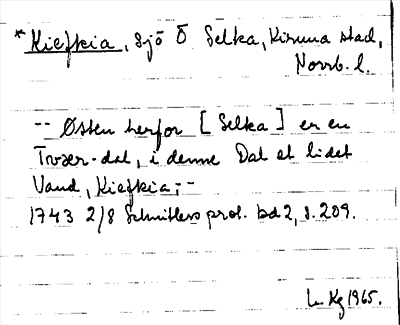 * Kiefkia, sjö Ö Selka, Kiruna stad,
Norrb. l.
-- Østen herfor [Selka] er en
Tvær-dal, i denne Dal et lidet
Vand, Kiefkia; -
1743 2/8 Schnitlers prot. bd 2, s. 209.
L. Kg 1965.